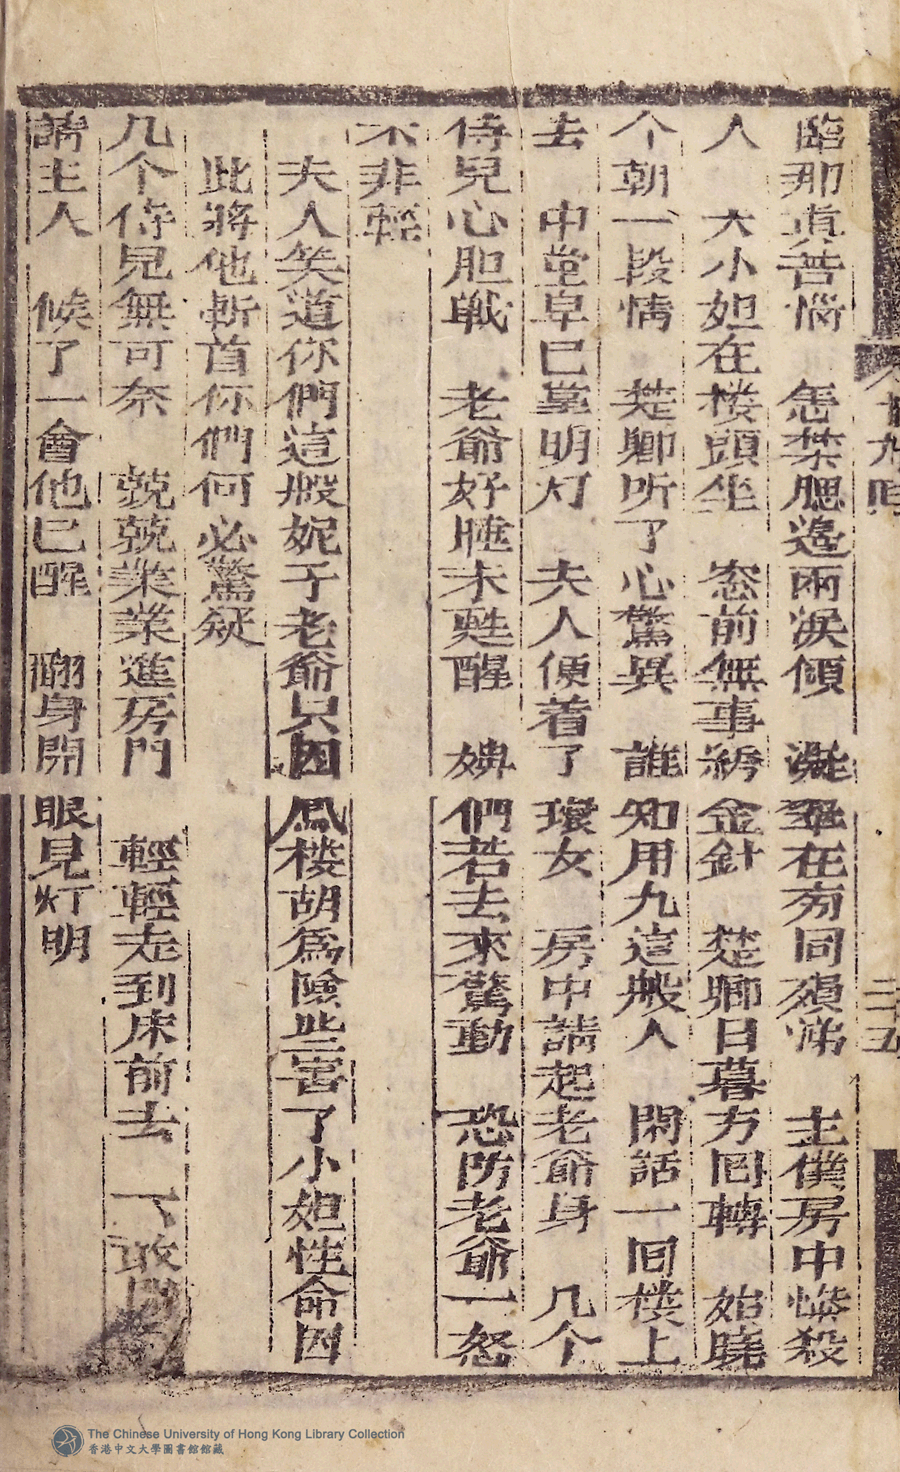 臨那道苦惱　怎禁腮邊兩淚傾　凝在旁同殞涕　主僕房中慘殺
人　大小姐在楼頭坐　窓前無事綉金針　楚卿日暮方囘轉　始曉
个朝一段情　楚卿听了心驚異　誰知用九這般人　閑話一囘楼上
去　中堂早已掌明灯　夫人便着了環女　房中請起老爺身　几个
侍兒心胆戰　老爺好睡未甦醒　婢們若去來驚動　恐防老爺一怒
不非輕
夫人笑道你們這般妮子老爺只因鳳楼胡爲險些害了小姐性命因
此將他斬首你們何必驚疑
几个侍兒無可奈　兢兢業業進房門　輕輕走到床前去　不敢
請主人　候了一會他已醒　翻身開眼見灯明
二十五
The Chinese University of Hong Kong Library Collection
香港中文大學圖書館館藏